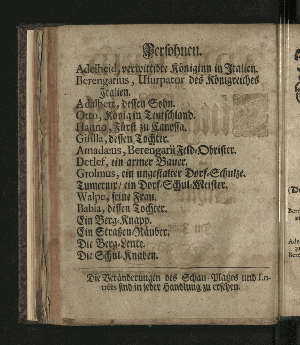 Persohnen.
Adelheid, verwittibte Königinn in Italien.
Berengarius, Usurpator des Königreiches
Italien.
Adalbert, dessen Sohn.
Otto, König in Teutschland.
Hanno, Fürst zu Canossa.
Gisilla, dessen Tochter.
Amadæus, Berengarii Feld-Obrister.
Detlef, ein armer Bauer.
Grolmus, ein ungestalter Dorf-Schulze.
Tumernix/ ein Dorf-Schul-Meister.
Walpe, seine Frau.
Babia, dessen Tochter.
Ein Berg-Knapp.
Ein Straßen-Räuber.
Die Berg-Leute.
Die Schul-Knaben.
Die Veränderungen des Schau-Platzes und
sind in jeder Handlung zu ersehen.